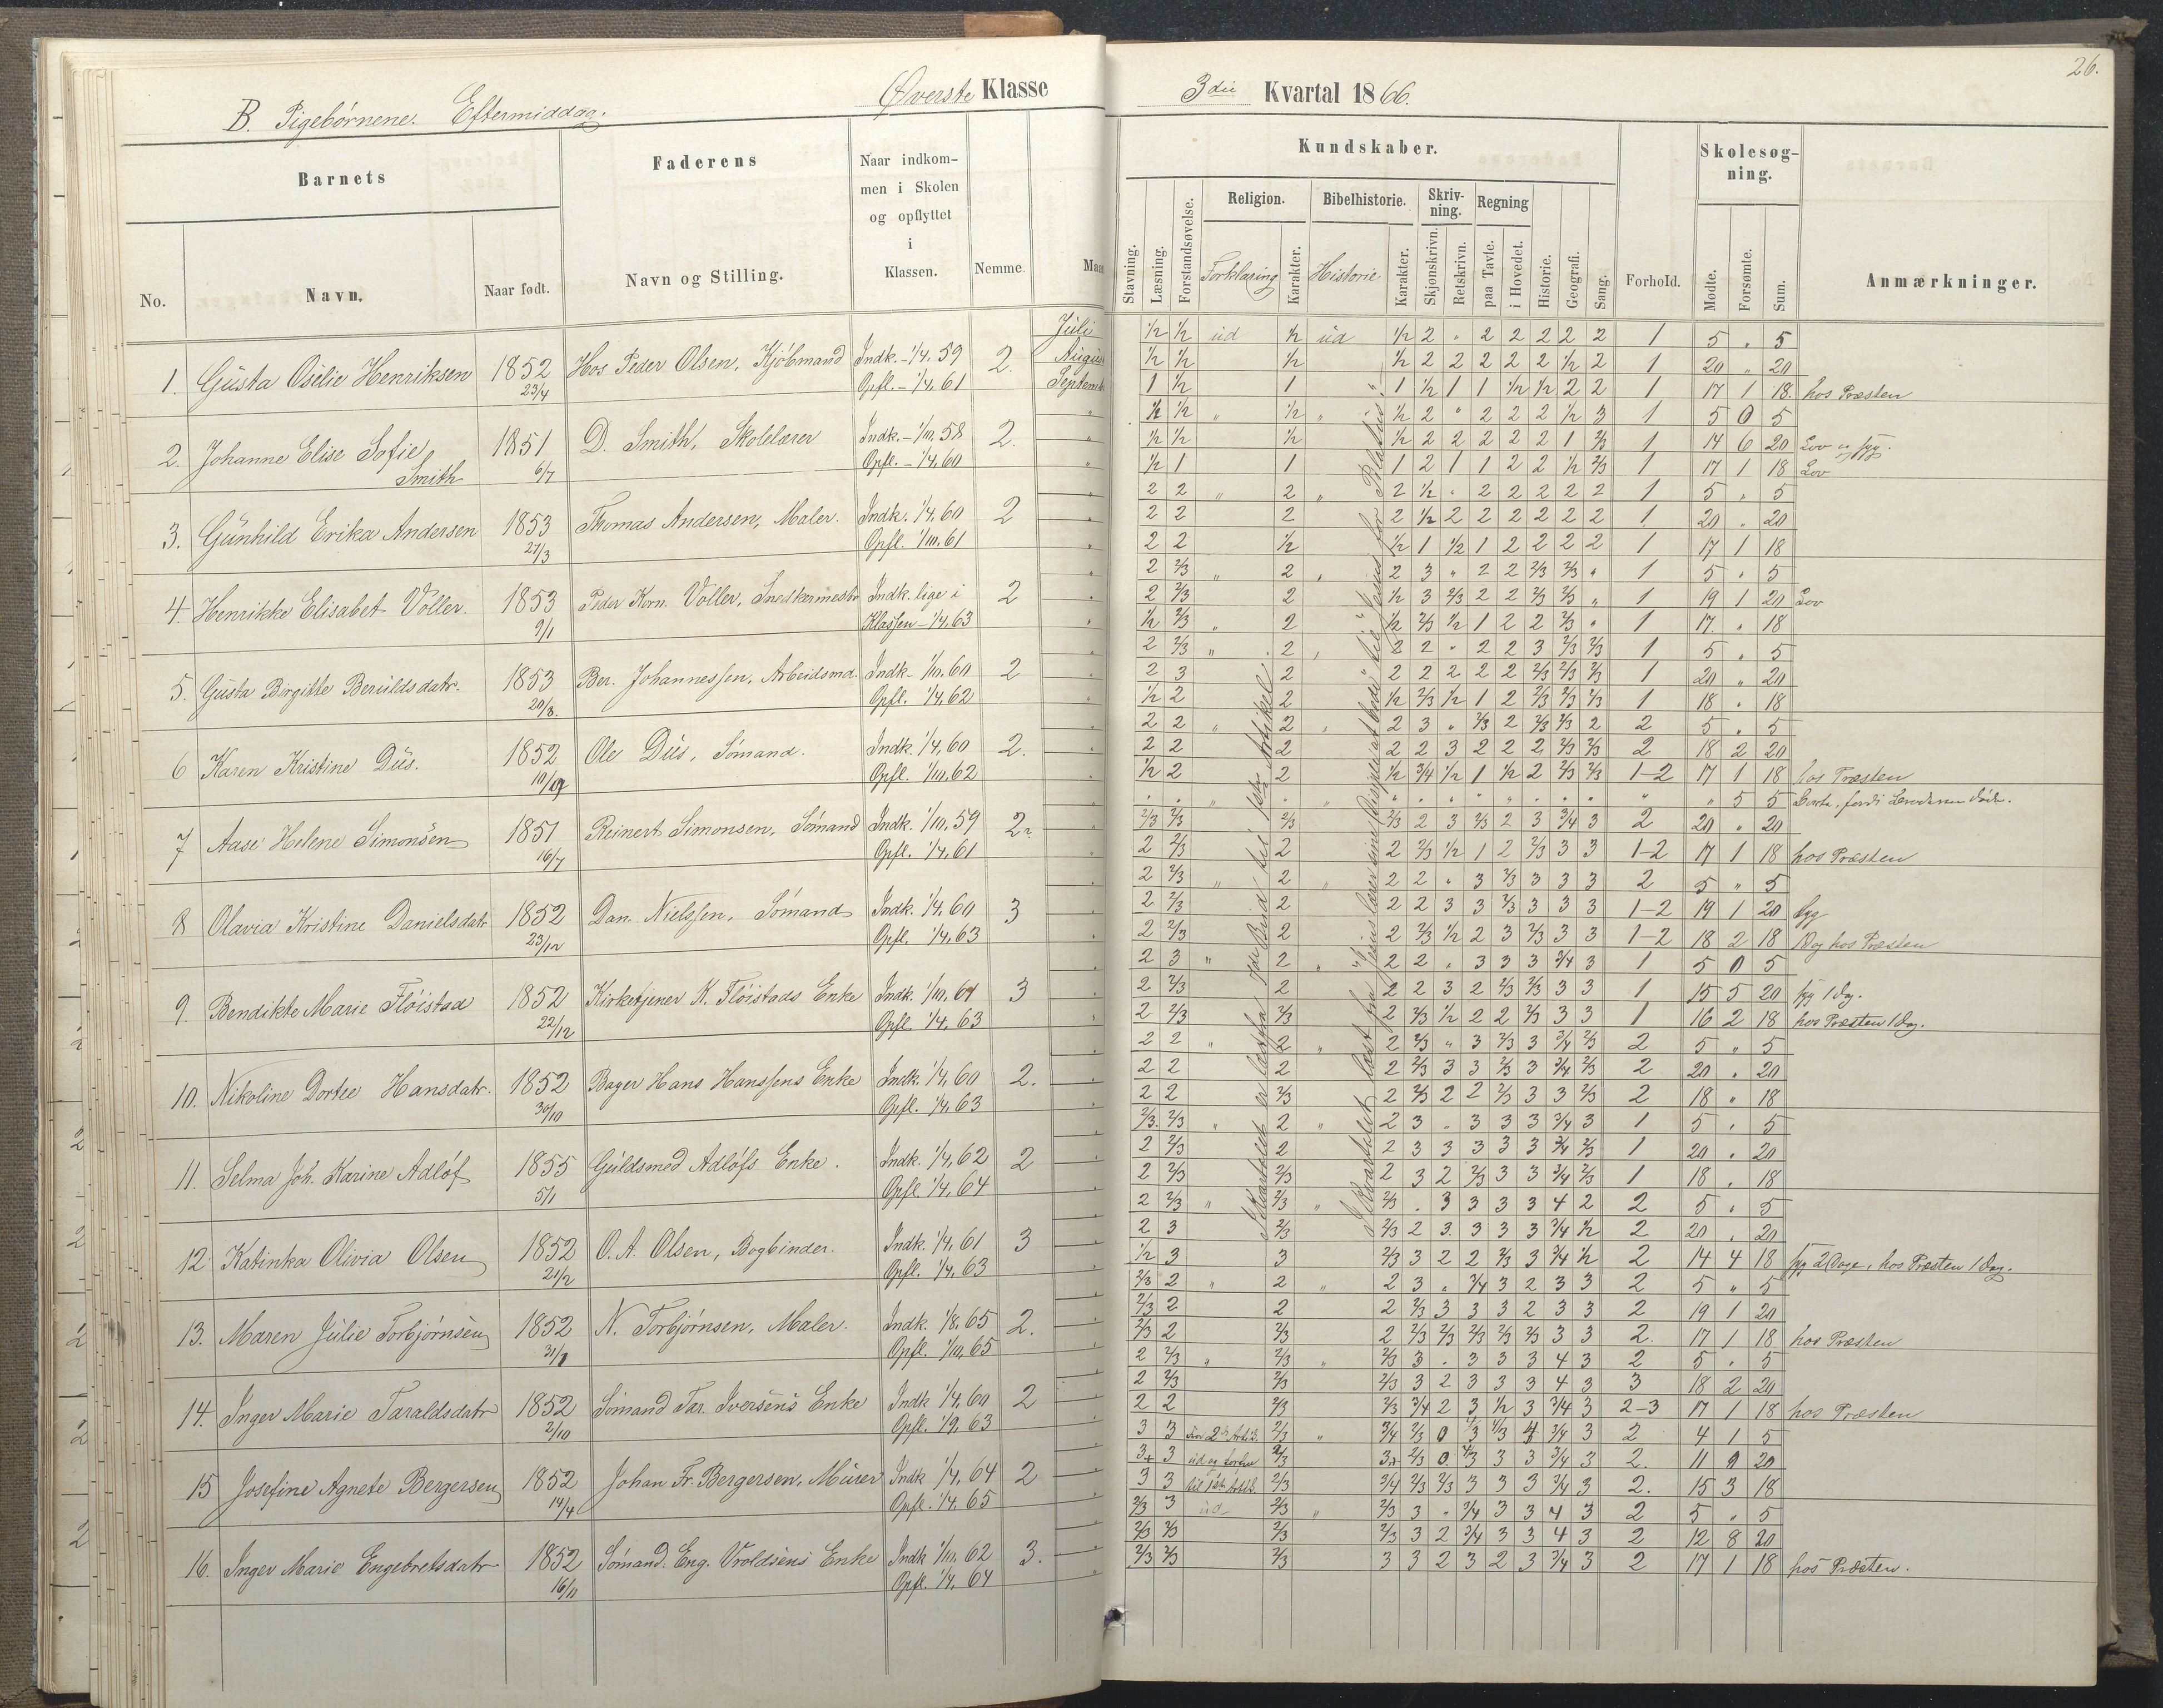 B. Pigebørnene. Eftermiddag.
Øverste Klasse
Barnets
Faderens
Naar indkommen i Skolen og opflyttet i Klassen.
Nemme.
No.
Navn.
Naar født.
Navn og Stilling.
1. Gusta Oselie Henriksen 1852 23/4 Hos Peder Olsen, Kjøbmand Indk. - 1/4. 59 Opfl. - 1/4. 61 2. Juli August Septemb
2. Johanne Elise Sofie Smith 1851 6/7 D. Smith, Skolelærer Indk. - 1/10. 58 Opfl. - 1/4. 60 2.
3. Gunhild Erika Andersen 1853 27/3 Thomas Andersen, Maler. Indk. 1/4. 60 Opfl. 1/10. 61 2
4. Henrikke Elisabet Voller. 1853 9/1 Peder Korn. Voller, Snedkermestr Indk. lige i Klassen - 1/4. 63 2
5. Gusta Birgitte Beruldsdatr. 1853 20/8. Ber. Johannessen, Arbeidsmd. Indk. 1/10. 60 Opfl. 1/4. 62 2
6 Karen Kristine Dus. 1852 Ole Dus, Sømand. Indk. 1/4. 60 Opfl. 1/10. 62 2.
7 Aase Helene Simonsen 1851 16/7 Reinert Simonsen, Sømand Indk. 1/10. 59 Opfl. 1/4. 61 2
8 Olavia Kristine Danielsdatr 1852 23/12 Dan. Nielssen, Sømand Indk. 1/4. 60 Opfl. 1/4. 63 3
9. Bendikte Marie Fløistad 1852 22/12 Kirketjener K. Fløistads Enke Indk. 1/10. 61 Opfl. 1/4. 63 3
10. Nikoline Dortee Hansdatr. 1852 30/10 Bager Hans Hanssens Enke Indk. 1/4. 60 Opfl. 1/4. 63 2.
11. Selma Joh. Karine Adløf 1855 5/1 Guldsmed Adløfs Enke. Indk. 1/4. 62 Opfl. 1/4. 64 2
12 Katinka Olivia Olsen 1852 21/2 O. A. Olsen, Bogbinder. Indk. 1/4. 61 Opfl. 1/4. 63 3
13. Maren Julie Torbjørnsen 1852 N. Torbjørnsen, Maler. Indk. 1/8. 65 Opfl. 1/10. 65 2.
14. Inger Marie Taraldsdatr 1852 2/10 Sømand Tar. Iversens Enke Indk 1/4. 60 Opfl. 1/9. 63 2
15 Josefine Agnete Bergersen 1852 14/4 Johan Fr. Bergersen, Murer Indk 1/4. 64 Opfl. 1/4. 65 2
16. Inger Marie Engebretsdatr 1852 16/11 Sømand. Eng. Vroldsens Enke Indk 1/10. 62 Opfl. 1/4. 64 3.
3die Kvartal 1866.
26.
Kundskaber.
Skolesøgning.
Stavning.
Læsning.
Forstandsøvelse.
Religion.
Forklaring
Karakter.
Bibelhistorie.
Historie
Karakter.
Skrivning.
Skjønskrivn.
Retskrivn.
Regning
paa Tavle.
i Hovedet.
Historie.
Geografi.
Sang.
Forhold.
Mødte.
Forsømte.
Sum.
Anmærkninger.
1/2 1/2 ud 1/2 ud 1/2 2 " 2 2 2 2 2 1 5 " 5
1/2 1/2 1/2 1/2 2 2 2 2 2 1/2 2 1 20 " 20
1 1/2 1 1 1/2 1 1 1/2 1/2 2 2 1 17 1 18. hos Præsten
1/2 1/2 " 1/2 " 1/2 2 " 2 2 2 1/2 3 1 5 0 5
1/2 1/2 1/2 1/2 2 2 2 2 2 1 2/3 1 14 6 20 Lov og syg.
1/2 1 1 1 2 1 1 2 2 1/2 2/3 1 17 1 18 Lov
2 2 " 2 " 2 1/2 " 2 2 2 2 2 1 5 " 5
2 2 2 2 1/2 2 2 2 2 2 2 1 20 " 20
2 2 1/2 1/2 1 1/2 1 2 2 2 2 1 17 1 18
2 2/3 " 2 " 2 3 " 2 2 2/3 2/3 " 1 5 " 5
2 2/3 2 1/2 3 2/3 2 2 2/3 2/3 " 1 19 1 20 Lov
1/2 2/3 " 2 1/2 2/3 1/2 1 2 2 2/3 " 1 17 " 18
2 2/3 " 2 " 2 2 " 2 2 3 2/3 2/3 1 5 " 5
2 3 2 2 2 2 2 2 2/3 2/3 2/3 1 20 " 20
1/2 2 2 1/2 2/3 1/2 1 2 2/3 2/3 2/3 1 18 " 18
2 2 " 2 " 2 3 " 2/3 2 2/3 2/3 2 2 5 " 5
2 2 2 2 2 3 2 2 2 2/3 2/3 2 18 2 20
1/2 2 2 1/2 3/4 1/2 1 1/2 2 2/3 2/3 1-2 17 1 18 hos Præsten
" 5 5 Borte, fordi
2/3 2/3 2/3 2/3 2 3 2/3 2 3 3/4 3 2 20 " 20
2 2/3 2 2 2/3 1/2 1 2 2/3 3 3 1-2 17 1 18 hos Præsten
2 2/3 " 2 " 2 2 " 3 2/3 3 3 3 2 5 " 5
2 2/3 2 2 2 3 3 2/3 3 3 3 1-2 19 1 20 syg
2 2/3 2 2 2/3 1/2 2 3 2/3 3 3 1-2 18 2 18 1 Dag hos Præsten
2 3 " 2 " 2 2 " 3 3 3 3/4 3 1 5 0 5
2 2/3 2 2 2 3 2 2/3 2/3 3 3 1 15 5 20 syg 1 Dag.
2 2/3 2/3 2 2/3 1/2 2 2 2/3 3 3 1 16 2 18 hos Præsten 1 Dag.
2 2 " 2 " 2 2/3 " 3 2/3 3 3/4 2/3 2 5 " 5
2 2 2 2 2/3 3 3 2/3 3 3/4 2/3 2 20 " 20
2 2 2/3 2 2/3 2 2 2/3 3 3 2/3 2 18 " 18
2/3. 2/3 " 2 " 2 3 " 3 3 3 3/4 3 1 5 " 5
2 2/3 2 2 3 3 3 3 3 3/4 2/3 1 20 " 20
2 2/3 2/3 2 3 2 2/3 3 3 3/4 2/3 1 18 " 18
2 2/3 " 2/3 " 2/3 " 3 3 3 3 4 2 2 5 " 5
2 3 2/3 2/3 2 3. 3 3 3 3/4 1/2 2 20 " 20
1/2 3 3 2/3 3 2 2 2/3 3 3/4 1/2 2 14 4 18 syg 2 Dage, hos Præsten 1 Dag.
2/3 2 " 2 " 2 3 " 3/4 3 2 3 3 2 5 " 5
2/3 2 2 2 2/3 3 3 3 2 3 3 2 19 1 20
2/3 2 2/3 2 2/3 2/3 2/3 2/3 2/3 3 3 2. 17 1 18 hos Præsten
2 2/3 " 2/3 " 2/3 3 " 3 3 3 4 3 2 5 " 5
2 2/3 2/3 2/3 3 2 3 3 3 4 3 3 18 2 20
2 2 2/3 2/3 3/4 2 3 1/2 3 3/4 3 2-3 17 1 18 hos Præsten
3 3 2/3 " 3/4 2/3 0 4/3 4/3 4 3/4 3 2 4 1 5
3+ 3 ud og 2/3 3+ 2/3 0 4/3 3 3 3/4 3 2. 11 9 20
3 3 til 1ste Artik. 2/3 3/4 2/3 2/3 3 3 3 3/4 3 2. 15 3 18
2/3 3 ud 2/3 " 2/3 3 " 3/4 3 3 4 3 2 5 " 5
2/3 2/3 2/3 2/3 3 2 3/4 3 3 4 3 2 12 8 20
2/3 2/3 2/3 3 3 2 3 2 3 3/4 3 2 17 1 18 hos Præsten.